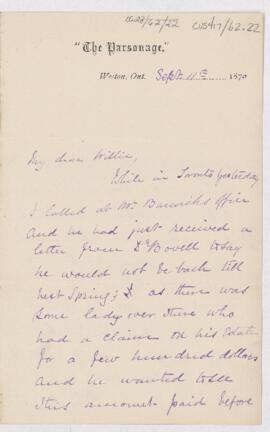 CUS417/62.22
"The Parsonage,"
Weston, Ont. Sept. 11th 1870
My dear Willie,
While in Toronto yesterday
I called at Mr Barwick's office
and he had just received a
letter from Dr Bovell to say
he would not be back till
next Spring; & as there was
some lady over there who
had a claim on his Estate
for a few hundred dollars
and he wanted to see
this amount paid before